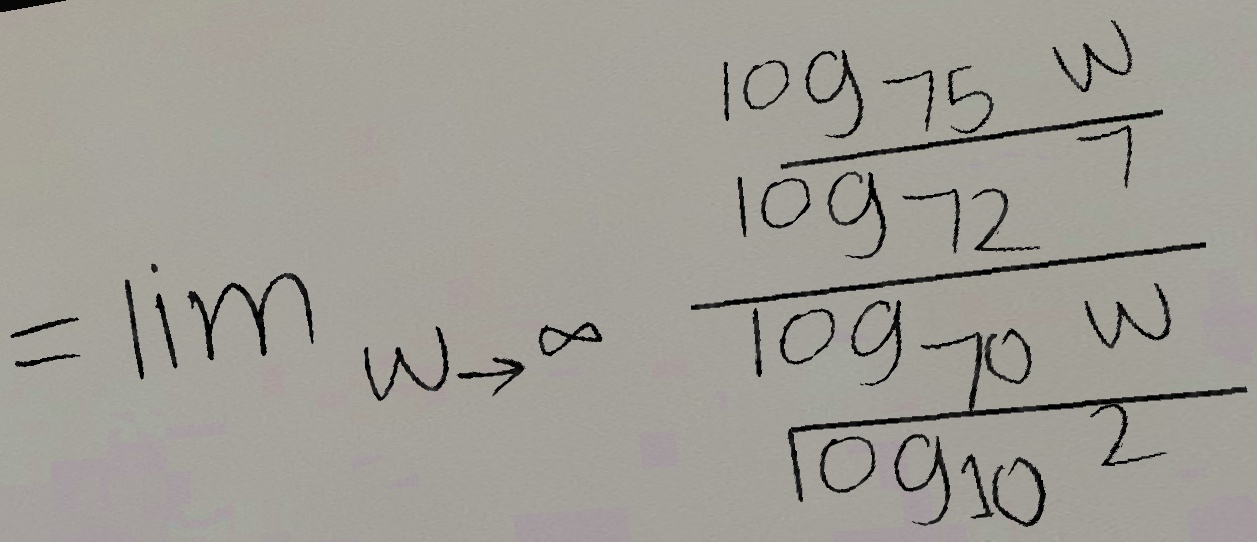 = lim w→∞ \frac{\frac{log_{75} w}{log_{72} 7}}{\frac{log_{70} w}{log_{10} 2}}